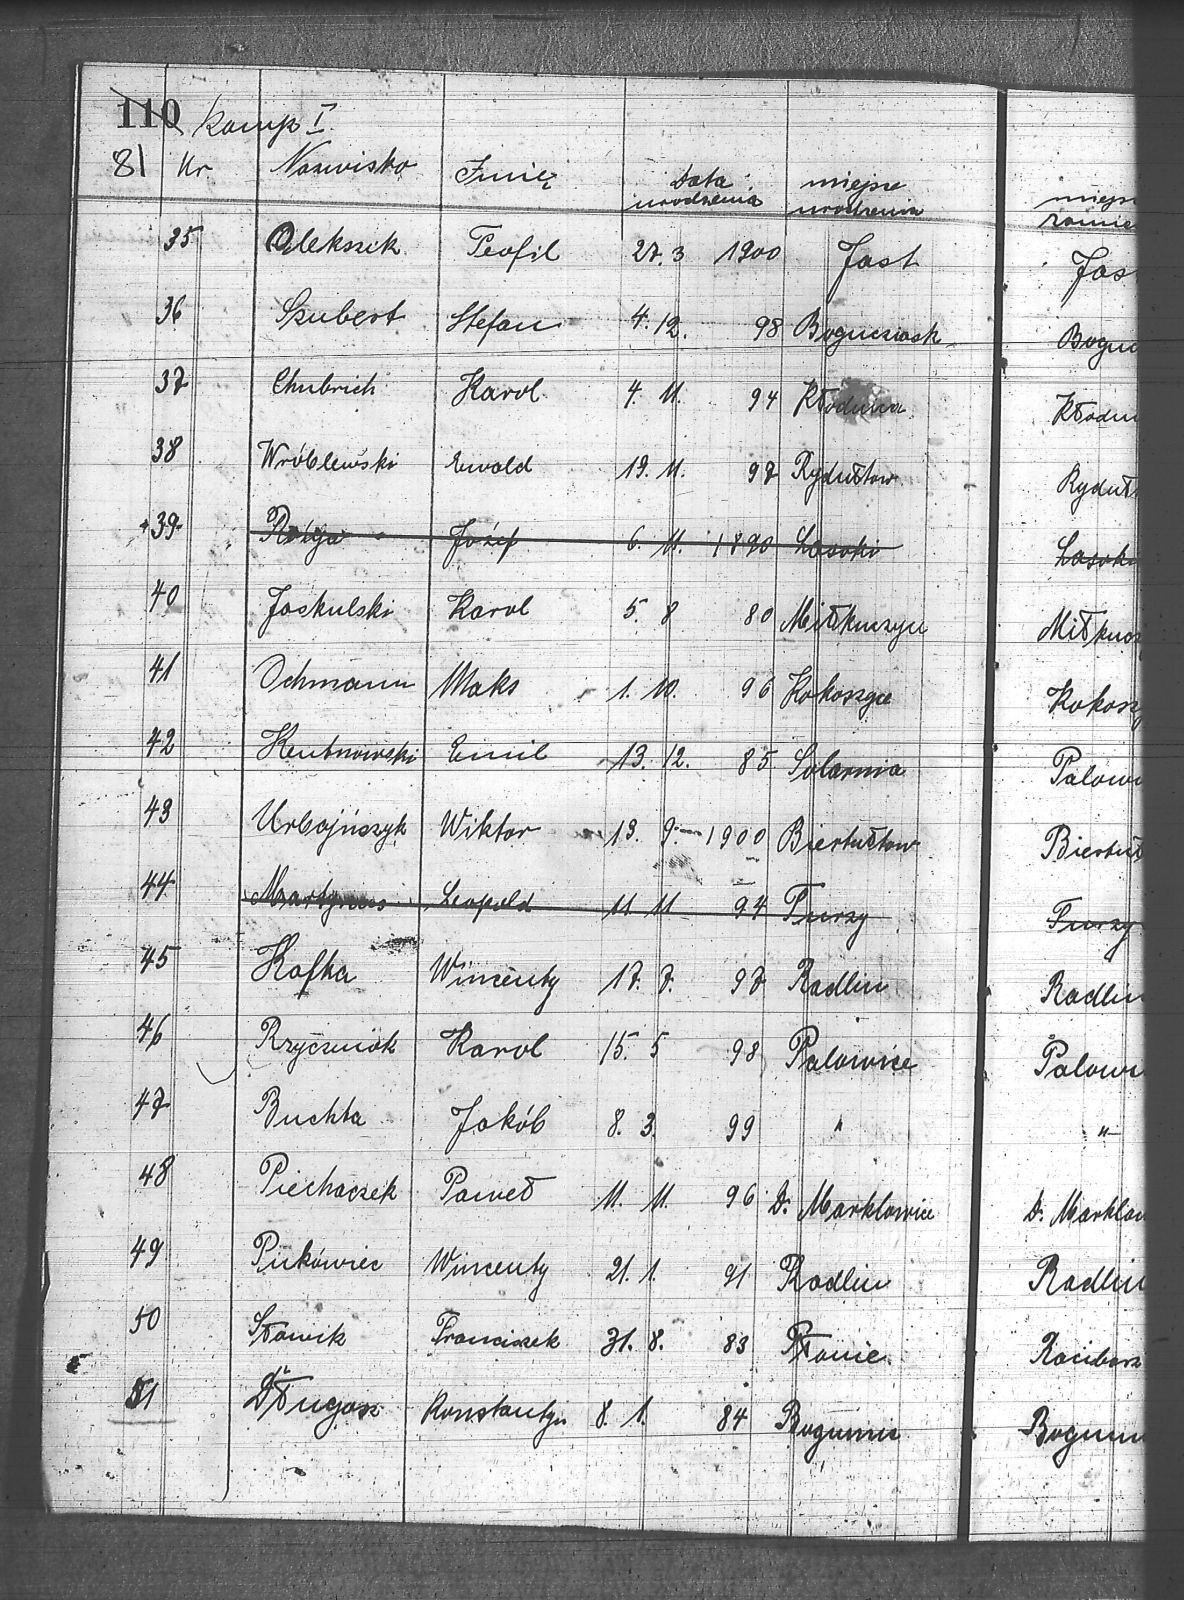 110 Komp I.
81 Nr Nazwisko Imię Data urodzenia miejsce urodzenia miejs zamie
35 Olekszik Teofil 27. 3 1900 Jast Jas
36 Szubert Stefan 4. 12. 98 Boguc
37 Chubrich Karol 4. 11. 94 Kłodnica Kłodni
38 Wróblewski Ewald 19. 11. 97 Rydułtow Ryduł
39 Józef 6. 11. 1890 Lasoki Lasok
40 Jaskulski Karol 5. 8 80
41 Ochmann Maks 1. 10. 96 Kokoszyce Kokosz
42 Kutnowski Emil 13. 12. 85 Solarnia Palowi
43 Urbajńszyk Wiktor 19. 9. 1900 Biertułtow Biertuł
44 Leopold 11 11 94 Turzy Turzy
45 Kafka Wincenty 17. 7. 97 Radlin Radlin
46 Rzyczniok Karol 15. 5 98 Palowice Palowi
47 Buchta Jakób 8. 3. 99 " "
48 Piechaczek Paweł 11. 11. 96 D. Marklowice D. Marklow
49 Pirkówiec Wincenty 21. 1. 91 Radlin Radlin
50 Sławik Franciszek 31. 8. 83 Płonie Raciborz
51 Długosz Konstantyn 8. 1. 84 Bogumi